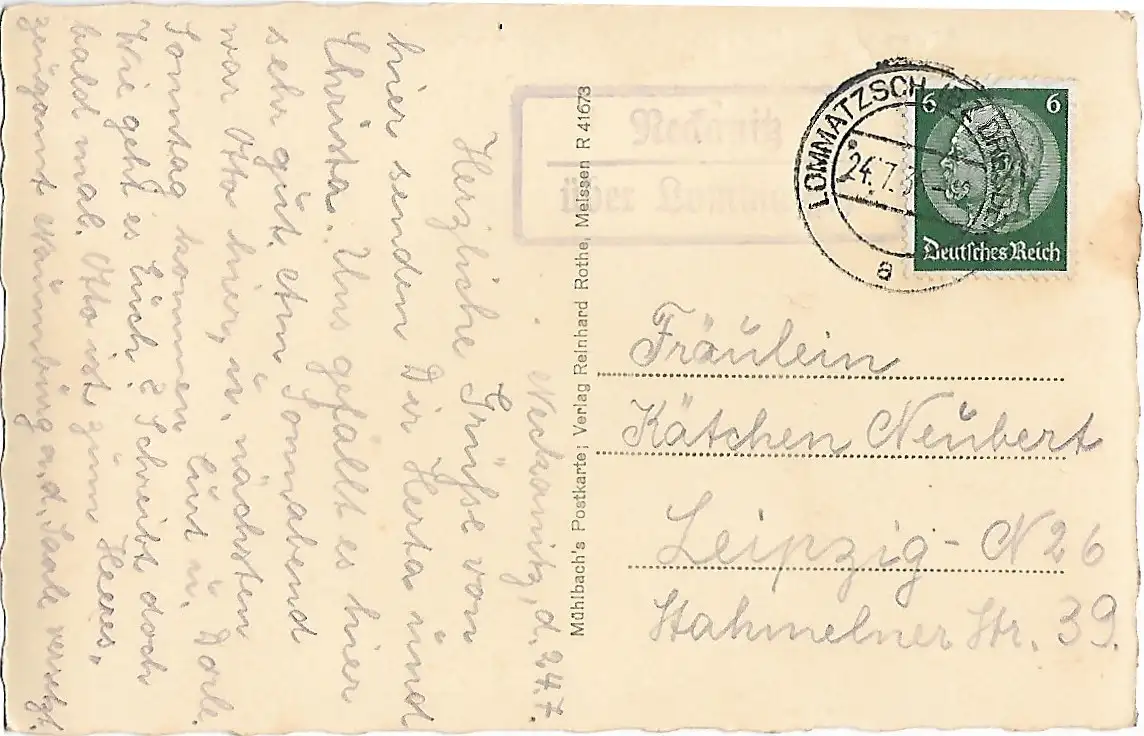 Neckanitz, d. 24.7.
Herzliche Grüße von
hier senden Dir Herta und
Christa. Uns gefällt es hier
sehr gut. Am Sonnabend
war Otto hier, u. nächsten
Sonntag kommen Curt u. Dorle.
Wie geht es Euch? Schreibt doch
bald mal. Otto ist zum Heeres,
zeugamt Naumburg a. d. Saale versetzt.
Mühlbach's Postkarte; Verlag Reinhard Rothe, Meissen R 41673
Neckanitz
über Lommatzsch
LOMMATZSCH (BZ DRESDEN)
24.7.3
a
6 6
Deutsches Reich
Fräulein
Kätchen Neubert
Leipzig - N 26
Stahmelner Str. 39.